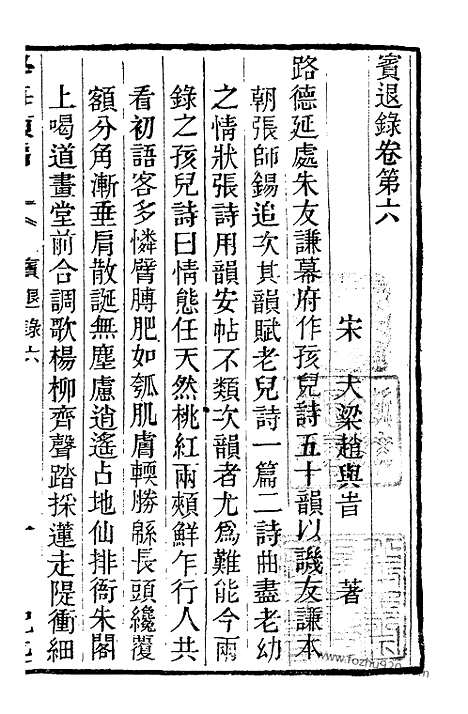 賓退錄卷第六
宋　大梁趙與旹　著
路德延處朱友謙幕府作孩兒詩五十韻以譏友謙本
朝張師錫追次其韻賦老兒詩一篇二詩曲盡老幼
之情狀張詩用韻安帖不類次韻者尤爲難能今兩
錄之孩兒詩曰情態任天然桃紅兩頰鮮乍行人共
看初語客多憐臂膊肥如瓠肌膚輭勝緜長頭纔覆
額分角漸垂肩散誕無塵慮逍遙占地仙排衙朱閣
上喝道畫堂前合調歌楊柳齊聲踏採蓮走隄衝細
賓退錄六
一
www.fozhu920.com